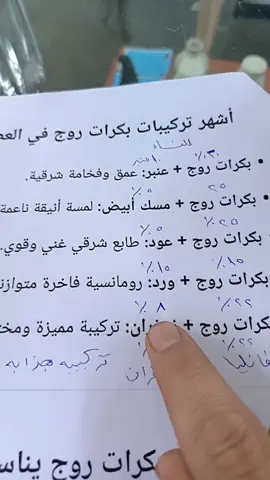 أشهر تركيبات بكرات روج في العط
للنساء
٣٠٪ ١٠ عنبر
بكرات روج + عنبر: عمق وفخامة شرقية.
٢٥ ٥٪
بكرات روج + مسك أبيض: لمسة أنيقة ناعمة
٢٥٪ ٥٪
بكرات روج + عود: طابع شرقي غني وقوي.
١٥٪ ١٥٪
بكرات روج + ورد: رومانسية فاخرة متوازنة
٢٢٪ ٨٪
كرات روج + ران: تركيبة مميزة ومخت
٢٢٪
فانليا ران تركيبه جذابه
كرات روج يناس